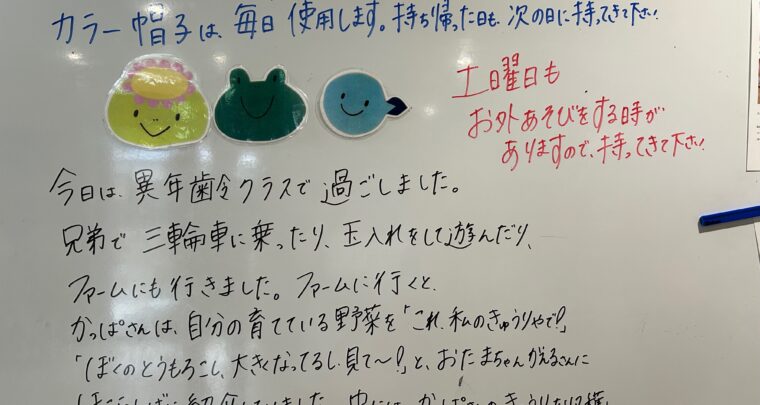 カラー帽子は、毎日使用します。持ち帰った日も、次の日に持ってきて下さい!
土曜日も
お外あそびをする時が
ありますので、持ってきて下さい!
今日は、異年齢クラスで過ごしました。
兄弟で三輪車に乗ったり、玉入れをして遊んだり、
ファームにも行きました。ファームに行くと、
かっぱさんは、自分の育てている野菜を「これ、私のきゅうりやで!」
「ぼくのとうもろこし、大きくなってるし、見て〜!」と、おたまちゃん、かえるさんに